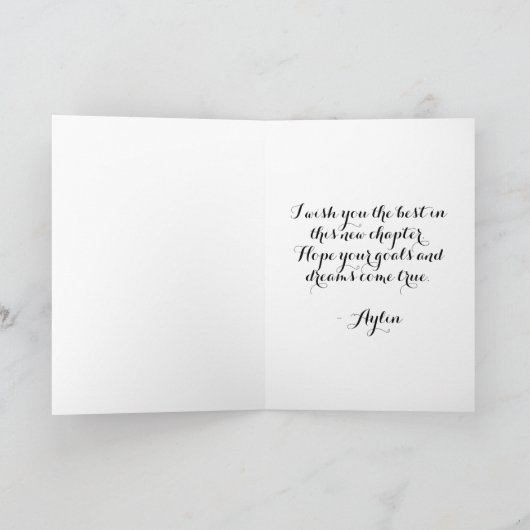 I wish you the best in
this new chapter.
Hope your goals and
dreams come true.
- Aylin